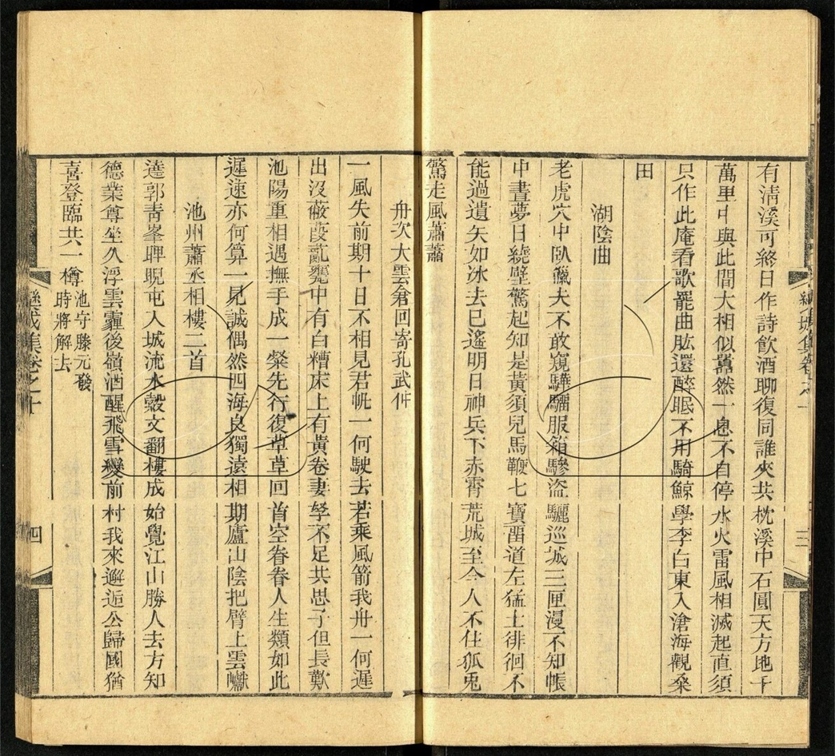 有清溪可終日作詩飲酒聊復同誰來共枕溪中石圓天方地千
萬里中與此間大相似翛然一息不自停水火雷風相滅起直須
只作此庵看歌罷曲肱還醉眠不用騎鯨學李白東入滄海觀桑
田
湖陰曲
老虎穴中臥獵夫不敢窺驊騮服箱驂盜驪巡城三匝漫不知帳
中晝夢日繞壁驚起知是黃須兒馬鞭七寶留道左猛士徘徊不
能過遺矢如冰去已遙明日神兵下赤霄荒城至今人不住狐兎
驚走風蕭蕭
舟次大雲倉回寄孔武仲
一風失前期十日不相見君帆一何駛去若乘風箭我舟一何遲
出沒蔽葭亂甕中有白糟床上有黃卷妻孥不足共思子但長歎
池陽重相遇撫手成一粲先行復草草回首空眷眷人生類如此
遲速亦何算一見誠偶然四海良獨遠相期廬山陰把臂上雲巘
池州蕭丞相樓二首
遶郭青峯睥睨屯入城流水縠文翻樓成始覺江山勝人去方知
德業尊坐久浮雲霾後嶺酒醒飛雪變前村我來邂逅公歸國猶
喜登臨共一樽池守滕元發
時將解去
欒城集卷之十
四